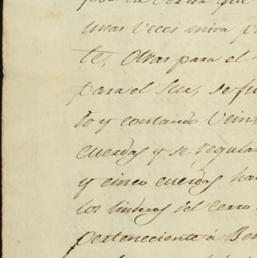 por la cerca que
unas veces mira p
te, otras para el
para el Sur, se fu
to y contando Vein
cuerdas y se regula
y cinco cuerdas ha
los linderos del Cerro
perteneciente á Ben